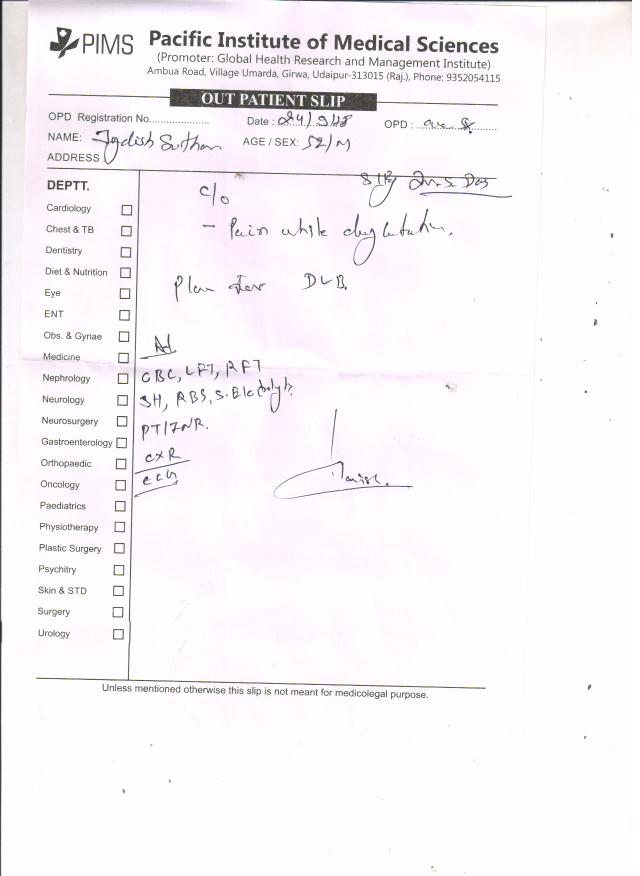 PIMS
Pacific Institute of Medical Sciences
(Promoter: Global Health Research and Management Institute)
Ambua Road, Village Umarda, Girwa, Udaipur-313015 (Raj.), Phone: 9352054115
OUT PATIENT SLIP
OPD Registration No. Date : OPD :
NAME: AGE / SEX: 52/M
ADDRESS
S/By Dr. S. Das
DEPTT.
c/o
Cardiology
Chest & TB
- Pain while deglutation.
Dentistry
Diet & Nutrition
Plan for DLB.
Eye
ENT
Obs. & Gynae
Ad
Medicine
Nephrology
CBC, LFT, RFT
Neurology
SH, RBS, S. Electrolyte
Neurosurgery
PT/INR.
Gastroenterology
CXR
Orthopaedic
ECG
Oncology
Paediatrics
Physiotherapy
Plastic Surgery
Psychitry
Skin & STD
Surgery
Urology
Unless mentioned otherwise this slip is not meant for medicolegal purpose.